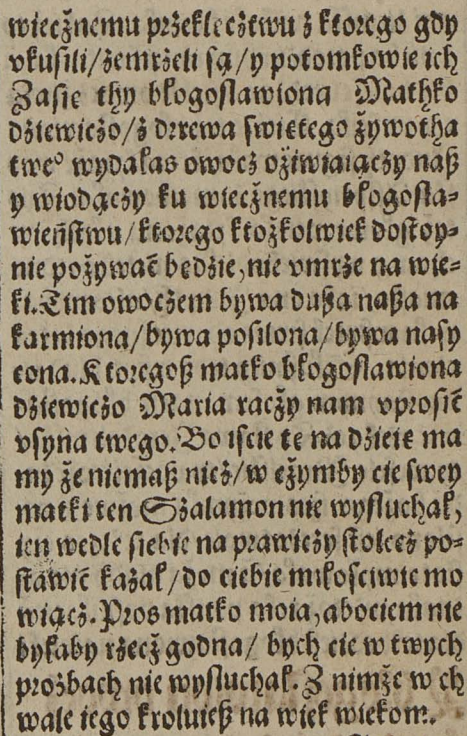 wiecżnemu prżeklecżtwu ż ktorego gdy
vkusili/żemrżeli są/y potomkowie ich
Zasie thy błogosławiona Mathko
dżiewicżo/ż drzewa swiętego żywotha
tweº wydałas owocż ożiwiaiącży naß
y wiodącży ku wiecżnemu błogosła-
wieństwu/ktorego ktożkolwiek dostoy-
nie pożywać będżie, nie vmrże na wie-
ki. Tim owocżem bywa dußa naßa na
karmiona/bywa posilona/bywa nasy
cona. Ktoregoß matko błogosławiona
dżiewicżo Maria racży nam vprosić
vsyna twego. Bo iscie tę na dżieię ma
my że niemaß nicż/w cżymby cie swey
matki ten Sżalamon nie wysłuchał,
ien wedle siebie na prawicży stolecż po-
stawić każał/do ciebie miłosciwie mo
wiącż. Pros matko moia, abociem nie
byłaby rżecż godna/ bych cie w twych
prożbach nie wysłuchał. Z nimże w ch
wale iego kroluieß na wiek wiekom.